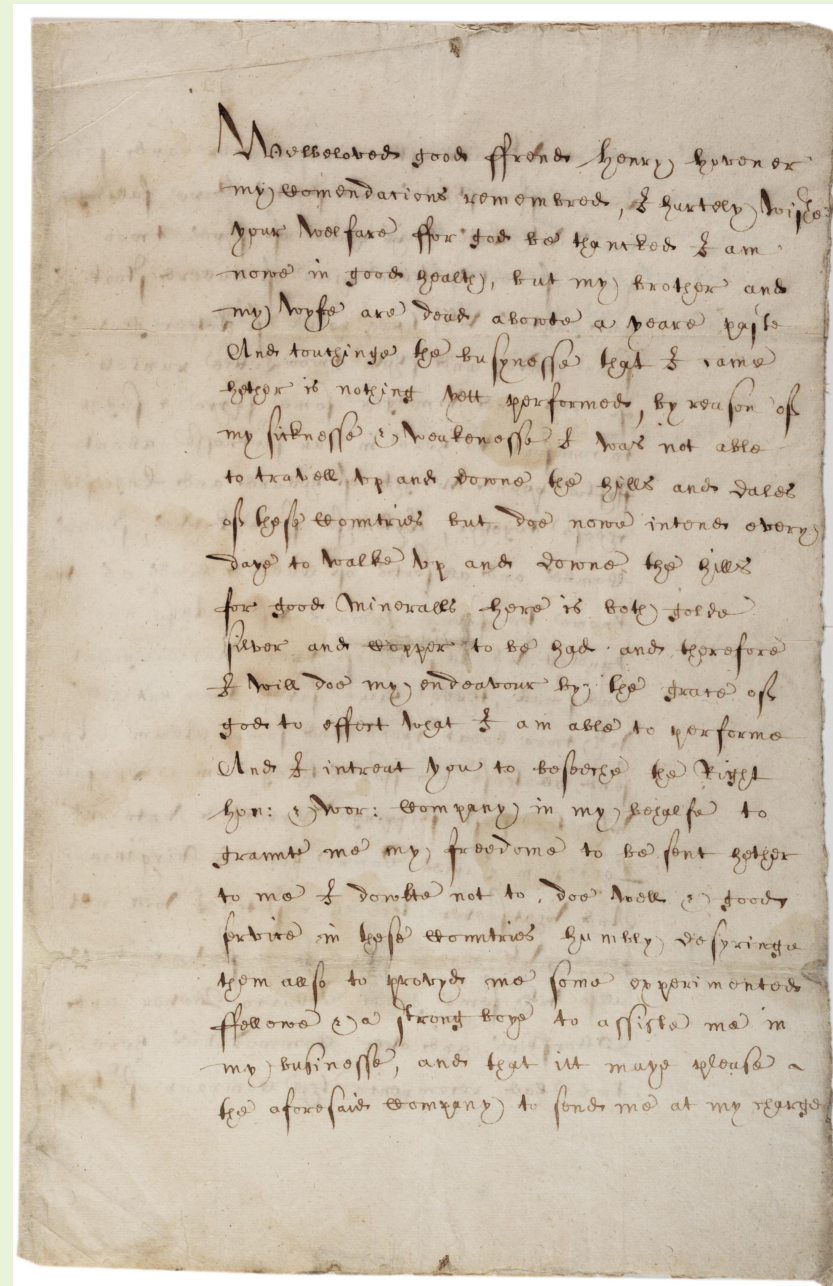 Welbeloved good ffrend Henry Hovener
my comendations remembred, I hartely wishe
your welfare ffor god be thancked I am
nowe in good health, but my brother and
my wyfe are dead aboute a yeare paste
And touchinge the busynesse that I came
hether is nothing yett performed, by reason of
my sicknesse & weakenesse I was not able
to travell up and downe the hills and dales
of these Countries but doe nowe intend every
daye to walke up and downe the hills
for good Mineralls here is both golde
silver and Copper to be had and therefore
I will doe my endeavour by the grace of
god to effect what I am able to performe
And I intreat you to beseeche the Right
hon: & wor: Company in my behalfe to
graunte me my freedome to be sent hether
to me I dowbte not to doe well & good
service in these Countries humbly desyringe
them allso to provyde me some experimented
ffellowe & a strong boye to assiste me in
my businesse, and that itt maye please
the aforesaid Company to send me at my charge